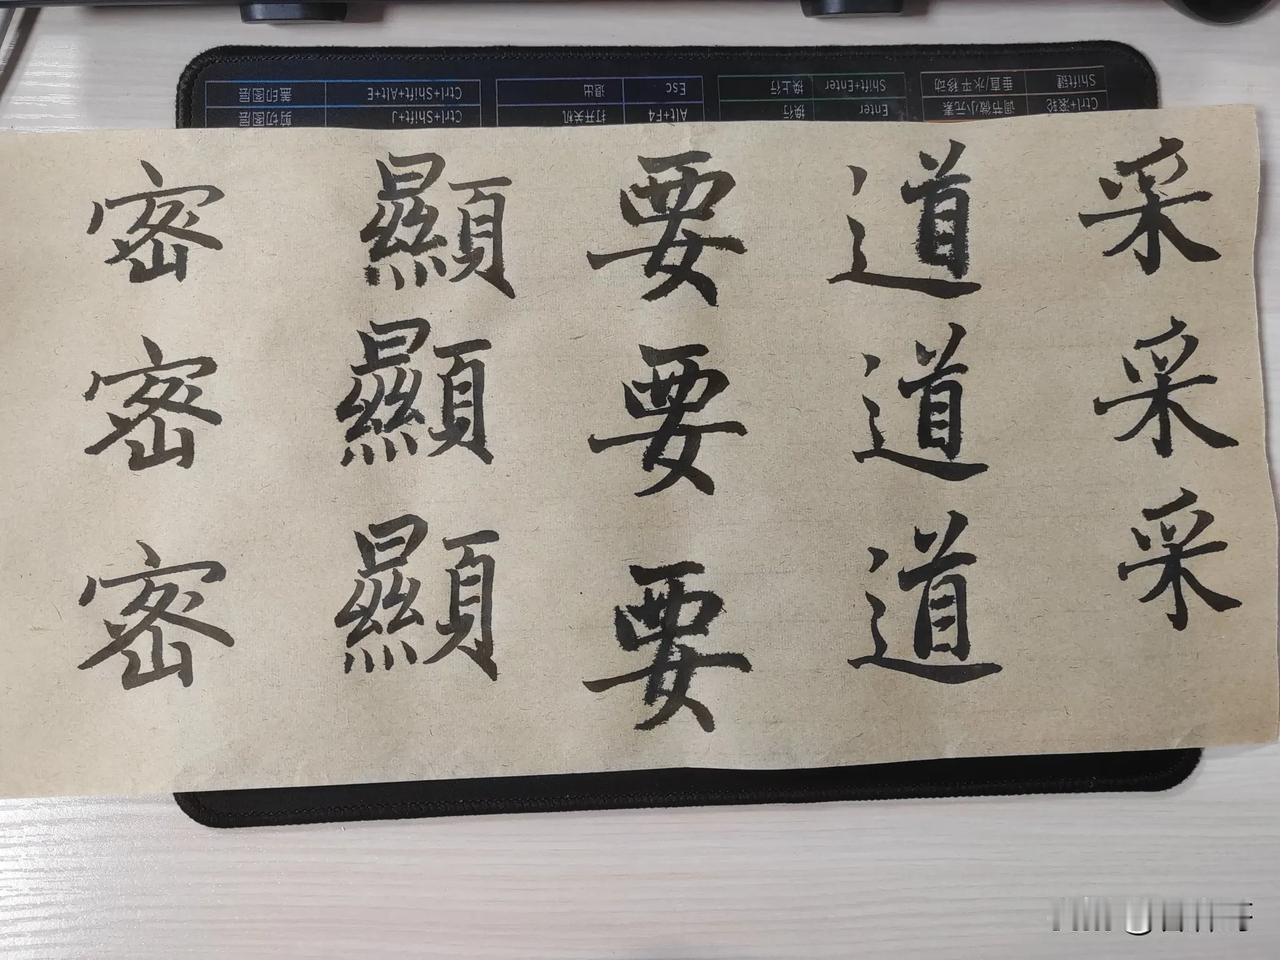 采采采
道道道
要要要
顯顯顯
密密密
Ctrl+滚轮 调节微小元素 Enter 换行 Alt+F4 打开关机 Ctrl+Shift+J 剪切图层
Shift键 垂直/水平移动 Shift+Enter 换上行 ESC 退出 Ctrl+Shift+Alt+E 盖印图层